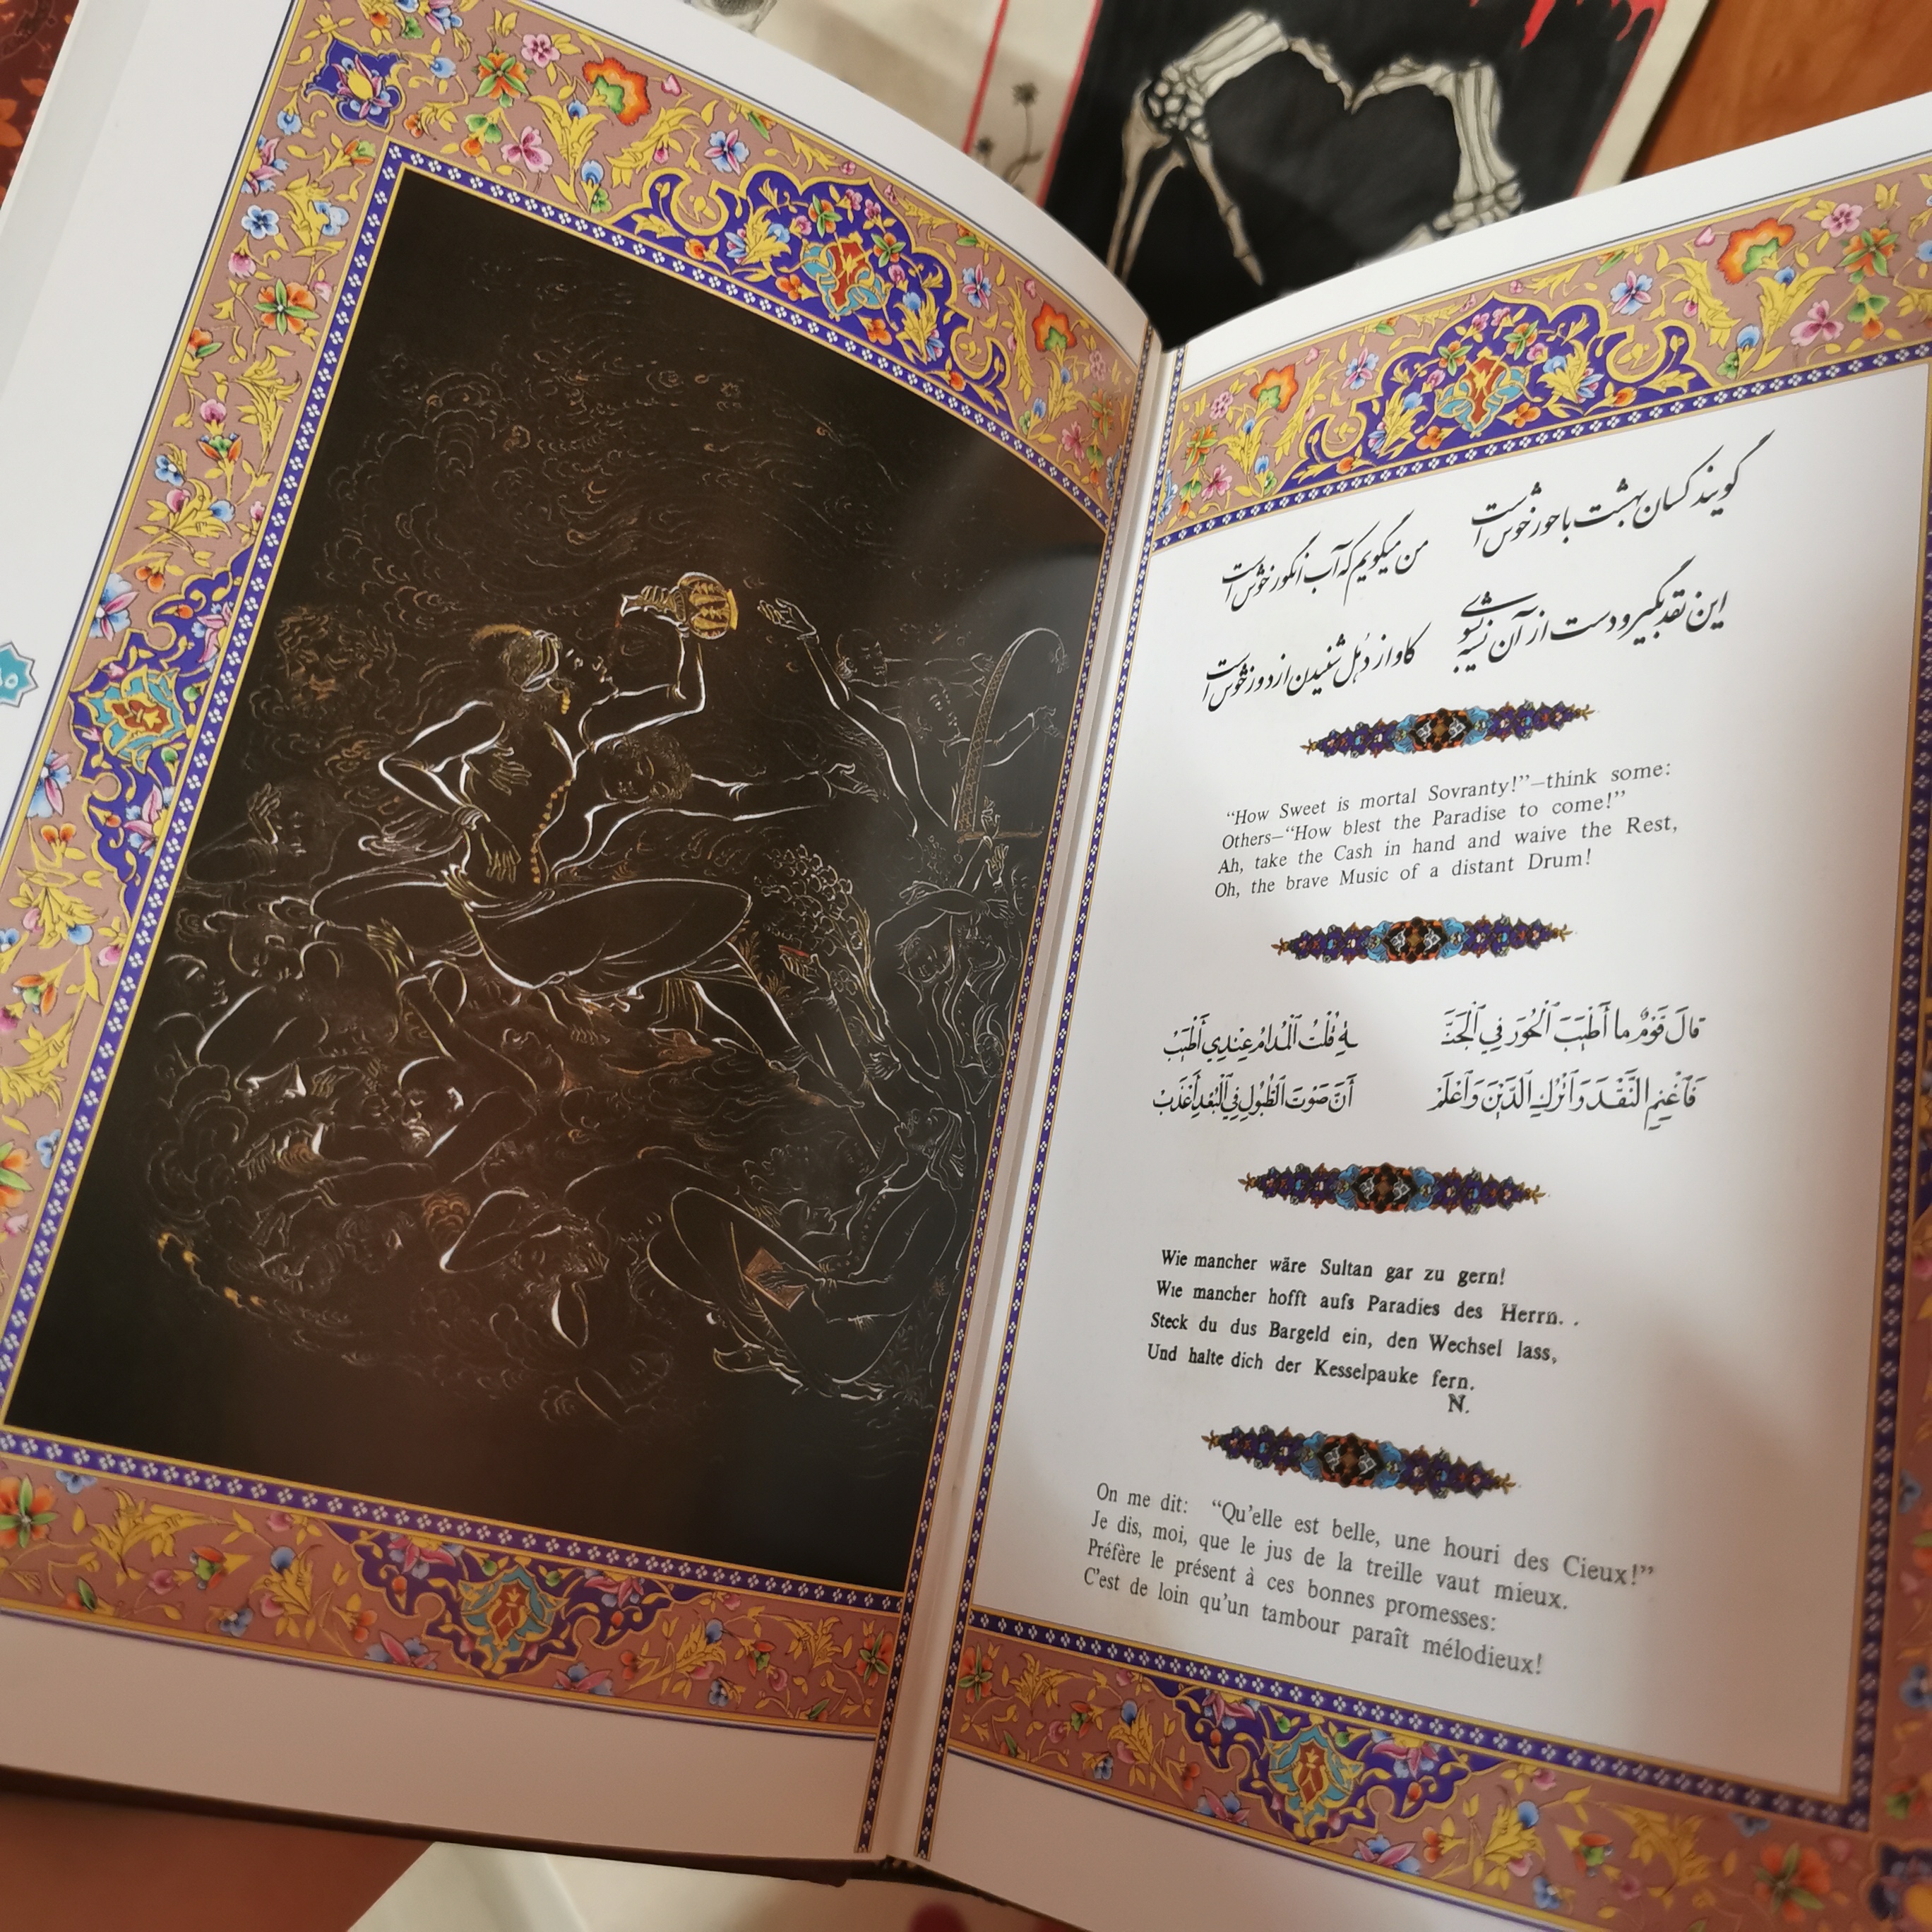 گویند کسان بهشت با حور خوش است
من میگویم که آب انگور خوش است
این نقد بگیر و دست از آن نسیه بشوی
کاواز دُهُل شنیدن از دور خوش است
“How Sweet is mortal Sovranty!”—think some:
Others—“How blest the Paradise to come!”
Ah, take the Cash in hand and waive the Rest,
Oh, the brave Music of a distant Drum!
قالَ قَوْمٌ ما أَطْيَبَ ٱلْحُورَ فِي ٱلْجَنَّـ
ـةِ قُلْتُ ٱلْمُدامُ عِنْدِي أَطْيَبُ
فَٱغْنِمِ ٱلنَّقْدَ وَٱتْرُكِ ٱلدَّيْنَ وَٱعْلَمْ
أَنَّ صَوْتَ ٱلطُّبُولِ فِي ٱلْبُعْدِ أَعْذَبُ
Wie mancher wäre Sultan gar zu gern!
Wie mancher hofft aufs Paradies des Herrn. .
Steck du dus Bargeld ein, den Wechsel lass,
Und halte dich der Kesselpauke fern.
N.
On me dit: “Qu’elle est belle, une houri des Cieux!”
Je dis, moi, que le jus de la treille vaut mieux.
Préfère le présent à ces bonnes promesses:
C’est de loin qu’un tambour paraît mélodieux!